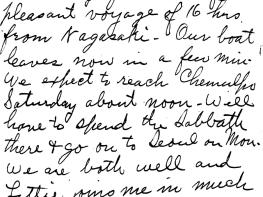 pleasant voyage of 16 hrs.
from Nagasaki - Our boat
leaves now in a few min-
We expect to reach Chemulpo
Saturday about noon - Will
have to spend the Sabbath
there & go on to Seoul on Mon.
We are both well and
Lettie joins me in much